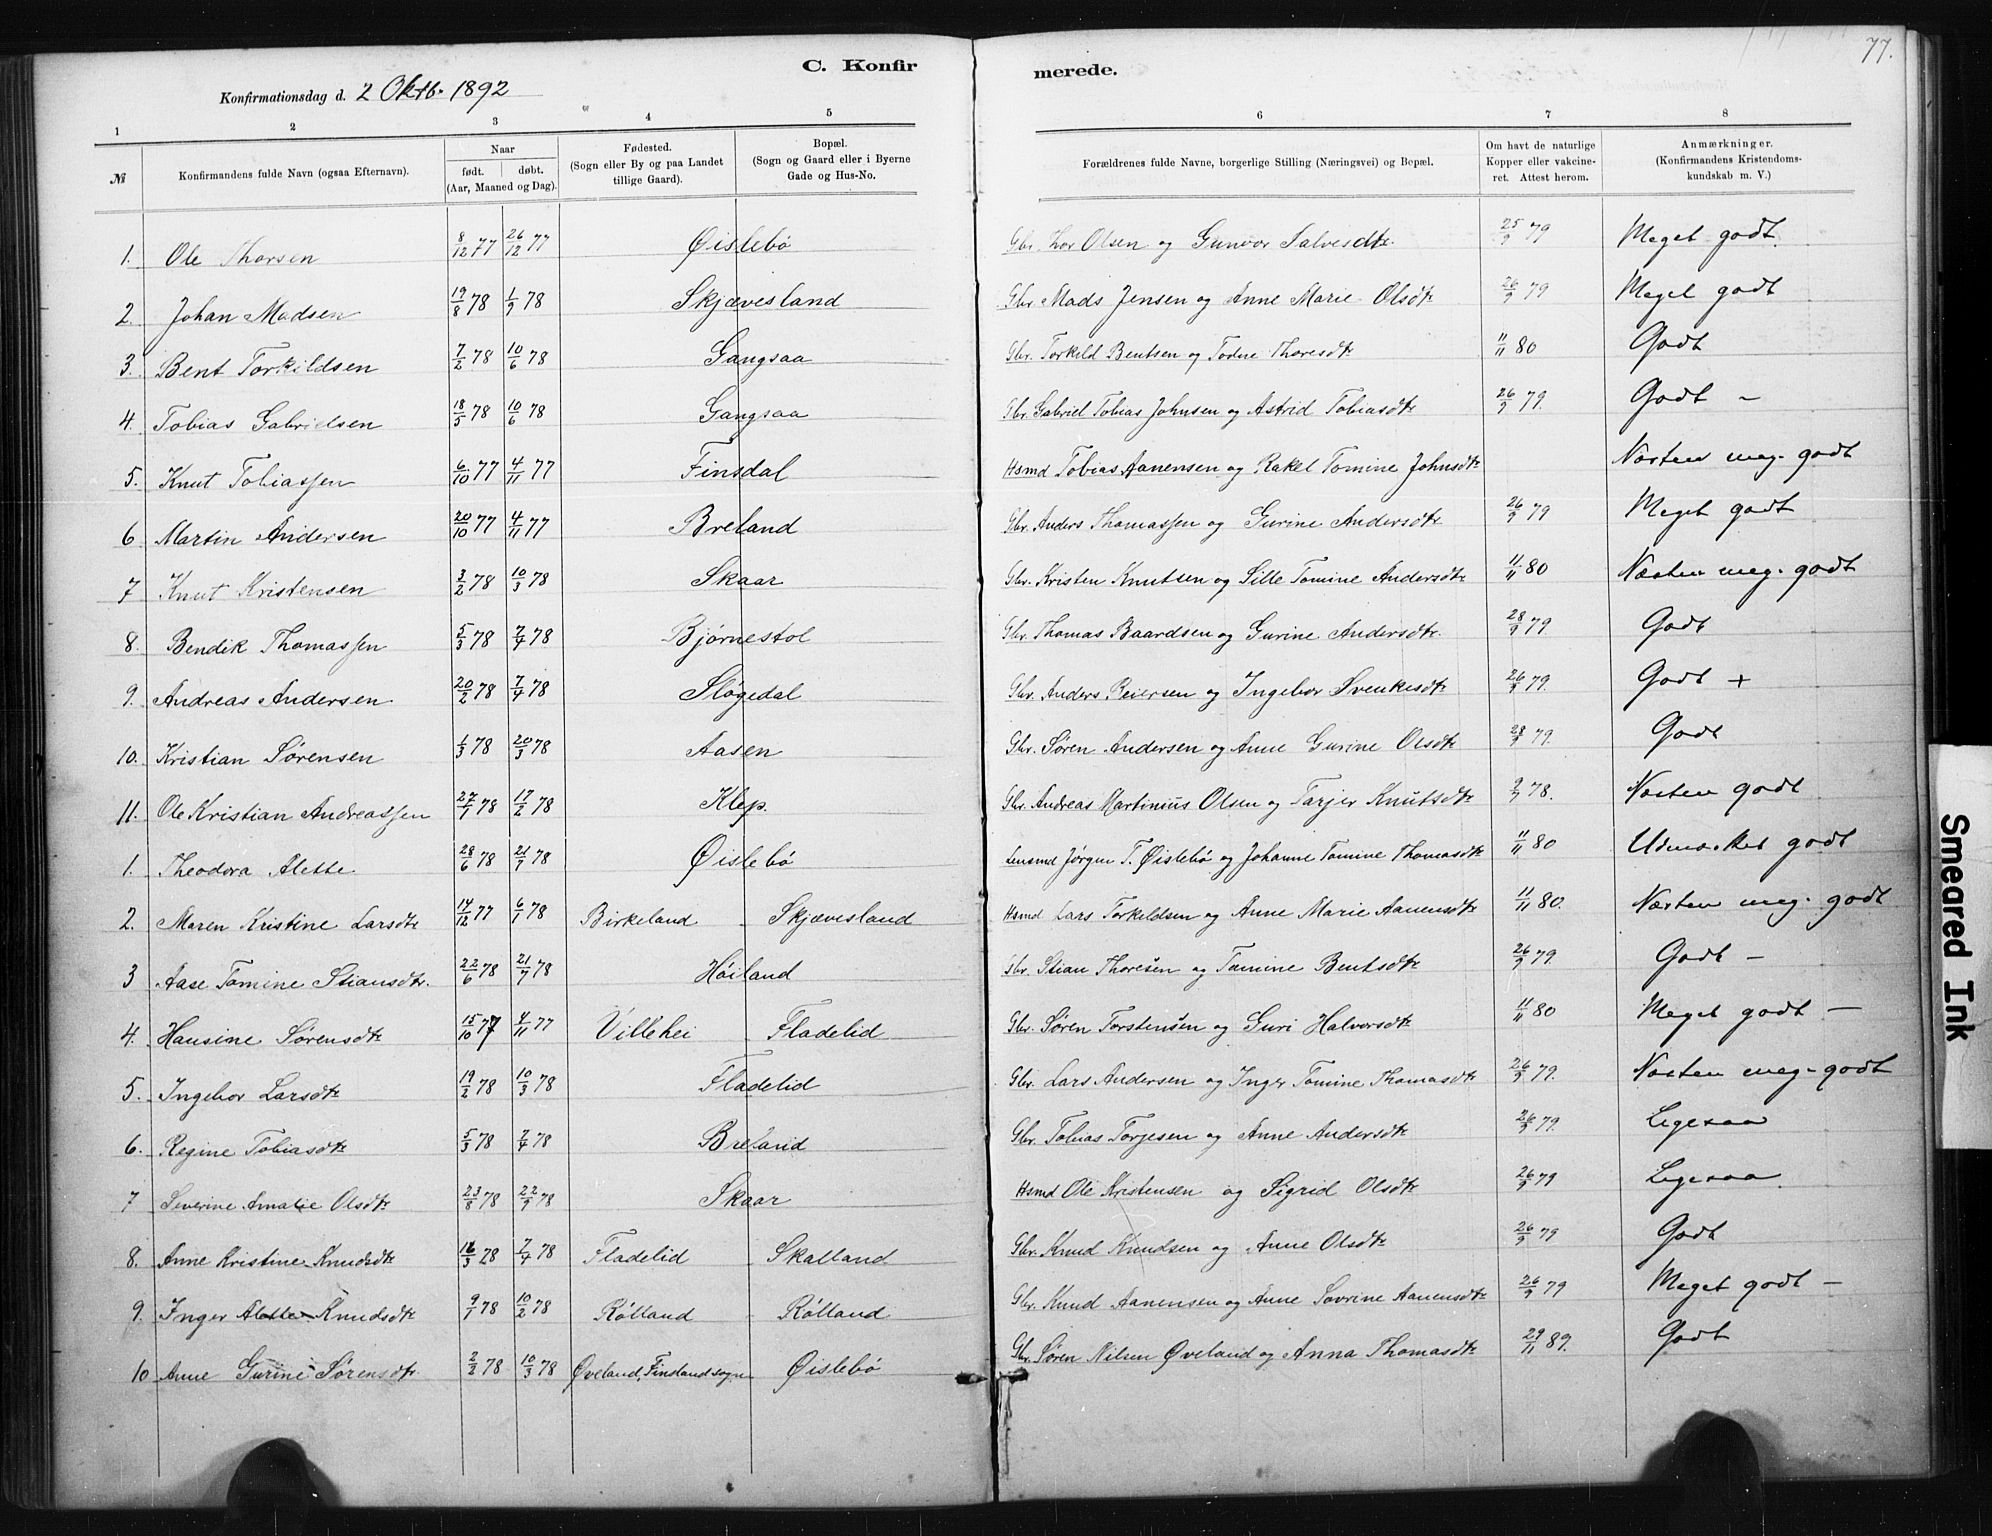 77.
C. Konfirmerede.
Konfirmationsdag d. 2 Oktb. 1892
1 2 3 4 5 6 7 8
№ Konfirmandens fulde Navn (ogsaa Efternavn). Naar født. døbt. (Aar, Maaned og Dag). Fødested. (Sogn eller By og paa Landet tillige Gaard). Bopæl. (Sogn og Gaard eller i Byerne Gade og Hus-No. Forældrenes fulde Navne, borgerlige Stilling (Næringsvei) og Bopæl. Om havt de naturlige Kopper eller vakcineret. Attest herom. Anmærkninger. (Konfirmandens Kristendomskundskab m. V.)
1. Ole Thorsen 8/12 77 26/12 77 Øislebö Gbr. Thor Olsen og Gunvor Salvesdtr. 25/9 79 Meget godt.
2. Johan Madsen 19/8 78 1/9 78 Skjævesland Gbr. Mads Jensen og Anne Marie Olsdtr 26/9 79 Meget godt
3. Bent Torkildsen 7/2 78 10/6 78 Gangsaa Gbr. Torkild Bentsen og Todne Thoresdtr 11/11 80 Godt
4. Tobias Gabrielsen 18/5 78 10/6 78 Gangsaa Gbr. Gabriel Tobias Johnsen og Astrid Tobiasdtr 26/9 79. Godt -
5. Knut Tobiassen 6/10 77 4/11 77 Finsdal Hsmd Tobias Aanensen og Rakel Tomine Johnsdtr Næsten meg. godt
6 Martin Andersen 20/10 77 4/11 77 Breland Gbr. Anders Thomassen og Gurine Andersdtr 26/9 79 Meget godt
7 Knut Kristensen 3/2 78 10/3 78 Skaar Gbr. Kristen Knutsen og Sille Tomine Andersdtr 11/11 80 Næsten meg. godt
8. Bendik Thomassen 5/3 78 7/4 78 Bjørnestol Gbr. Thomas Baardsen og Gurine Andersdtr. 28/9 79. Godt
9. Andreas Andersen 20/2 78 7/4 78 Sløgedal Gbr. Anders Reiersen og Ingebor Svenkesdtr 26/9 79. Godt +
10. Kristian Sørensen 1/3 78 20/3 78 Aasen Gbr. Søren Andersen og Anne Gurine Olsdtr 28/9 79. Godt
11. Ole Kristian Andreassen 27/1 78 17/2 78 Klep. Gbr. Andreas Martinius Olsen og Tarjer Knutsdtr 9/7 78. Næsten godt
1. Theodora Alette 28/6 78 21/7 78 Øislebö Lensmd Jørgen T. Øislebö og Johanne Tomine Thomasdtr 11/11 80 Udmærket godt
2. Maren Kristine Larsdtr 14/12 77 6/1 78 Birkeland Skjævesland Hsmd Lars Torkeldsen og Anne Marie Aanensdtr 11/11 80. Næsten meg. godt
3 Aase Tomine Stiansdtr. 22/6 78 21/7 78 Höiland Gbr. Stian Thoresen og Tomine Bentsdtr 26/9 79. Godt -
4. Hansine Sørensdtr 15/10 77 4/11 77 Villehei Fladelid Gbr. Søren Torstensen og Guri Halvorsdtr 11/11 80 Meget godt -
5. Ingebor Larsdtr 19/2 78 10/3 78 Fladelid Gbr. Lars Andersen og Inger Tomine Thomasdtr 26/9 79. Næsten meg. godt
6. Regine Tobiasdtr 5/3 78 7/4 78 Breland Gbr. Tobias Torjesen og Anne Andersdtr 26/9 79. Ligesaa
7 Severine Amalie Olsdtr 23/8 78 22/9 78 Skaar Hsmd Ole Kristensen og Sigrid Olsdtr 26/9 79 Ligesaa
8. Anne Kristine Knudsdtr 16/3 78 7/4 78 Fladelid Skalland Gbr. Knud Knudsen og Anne Olsdtr 26/9 79 Godt
9. Inger Alette Knudsdtr 9/1 78 10/2 78 Rölland Rölland Gbr. Knud Aanensen og Anne Sovrine Aanensdtr 26/9 79 Meget godt -
10 Anne Gurine Sørensdtr. 2/2 78 10/3 78 Øveland, Finsland sogn Øislebö Gbr. Søren Nilsen Øveland og Anna Thomasdtr 29/11 89. Godt
Smeared Ink